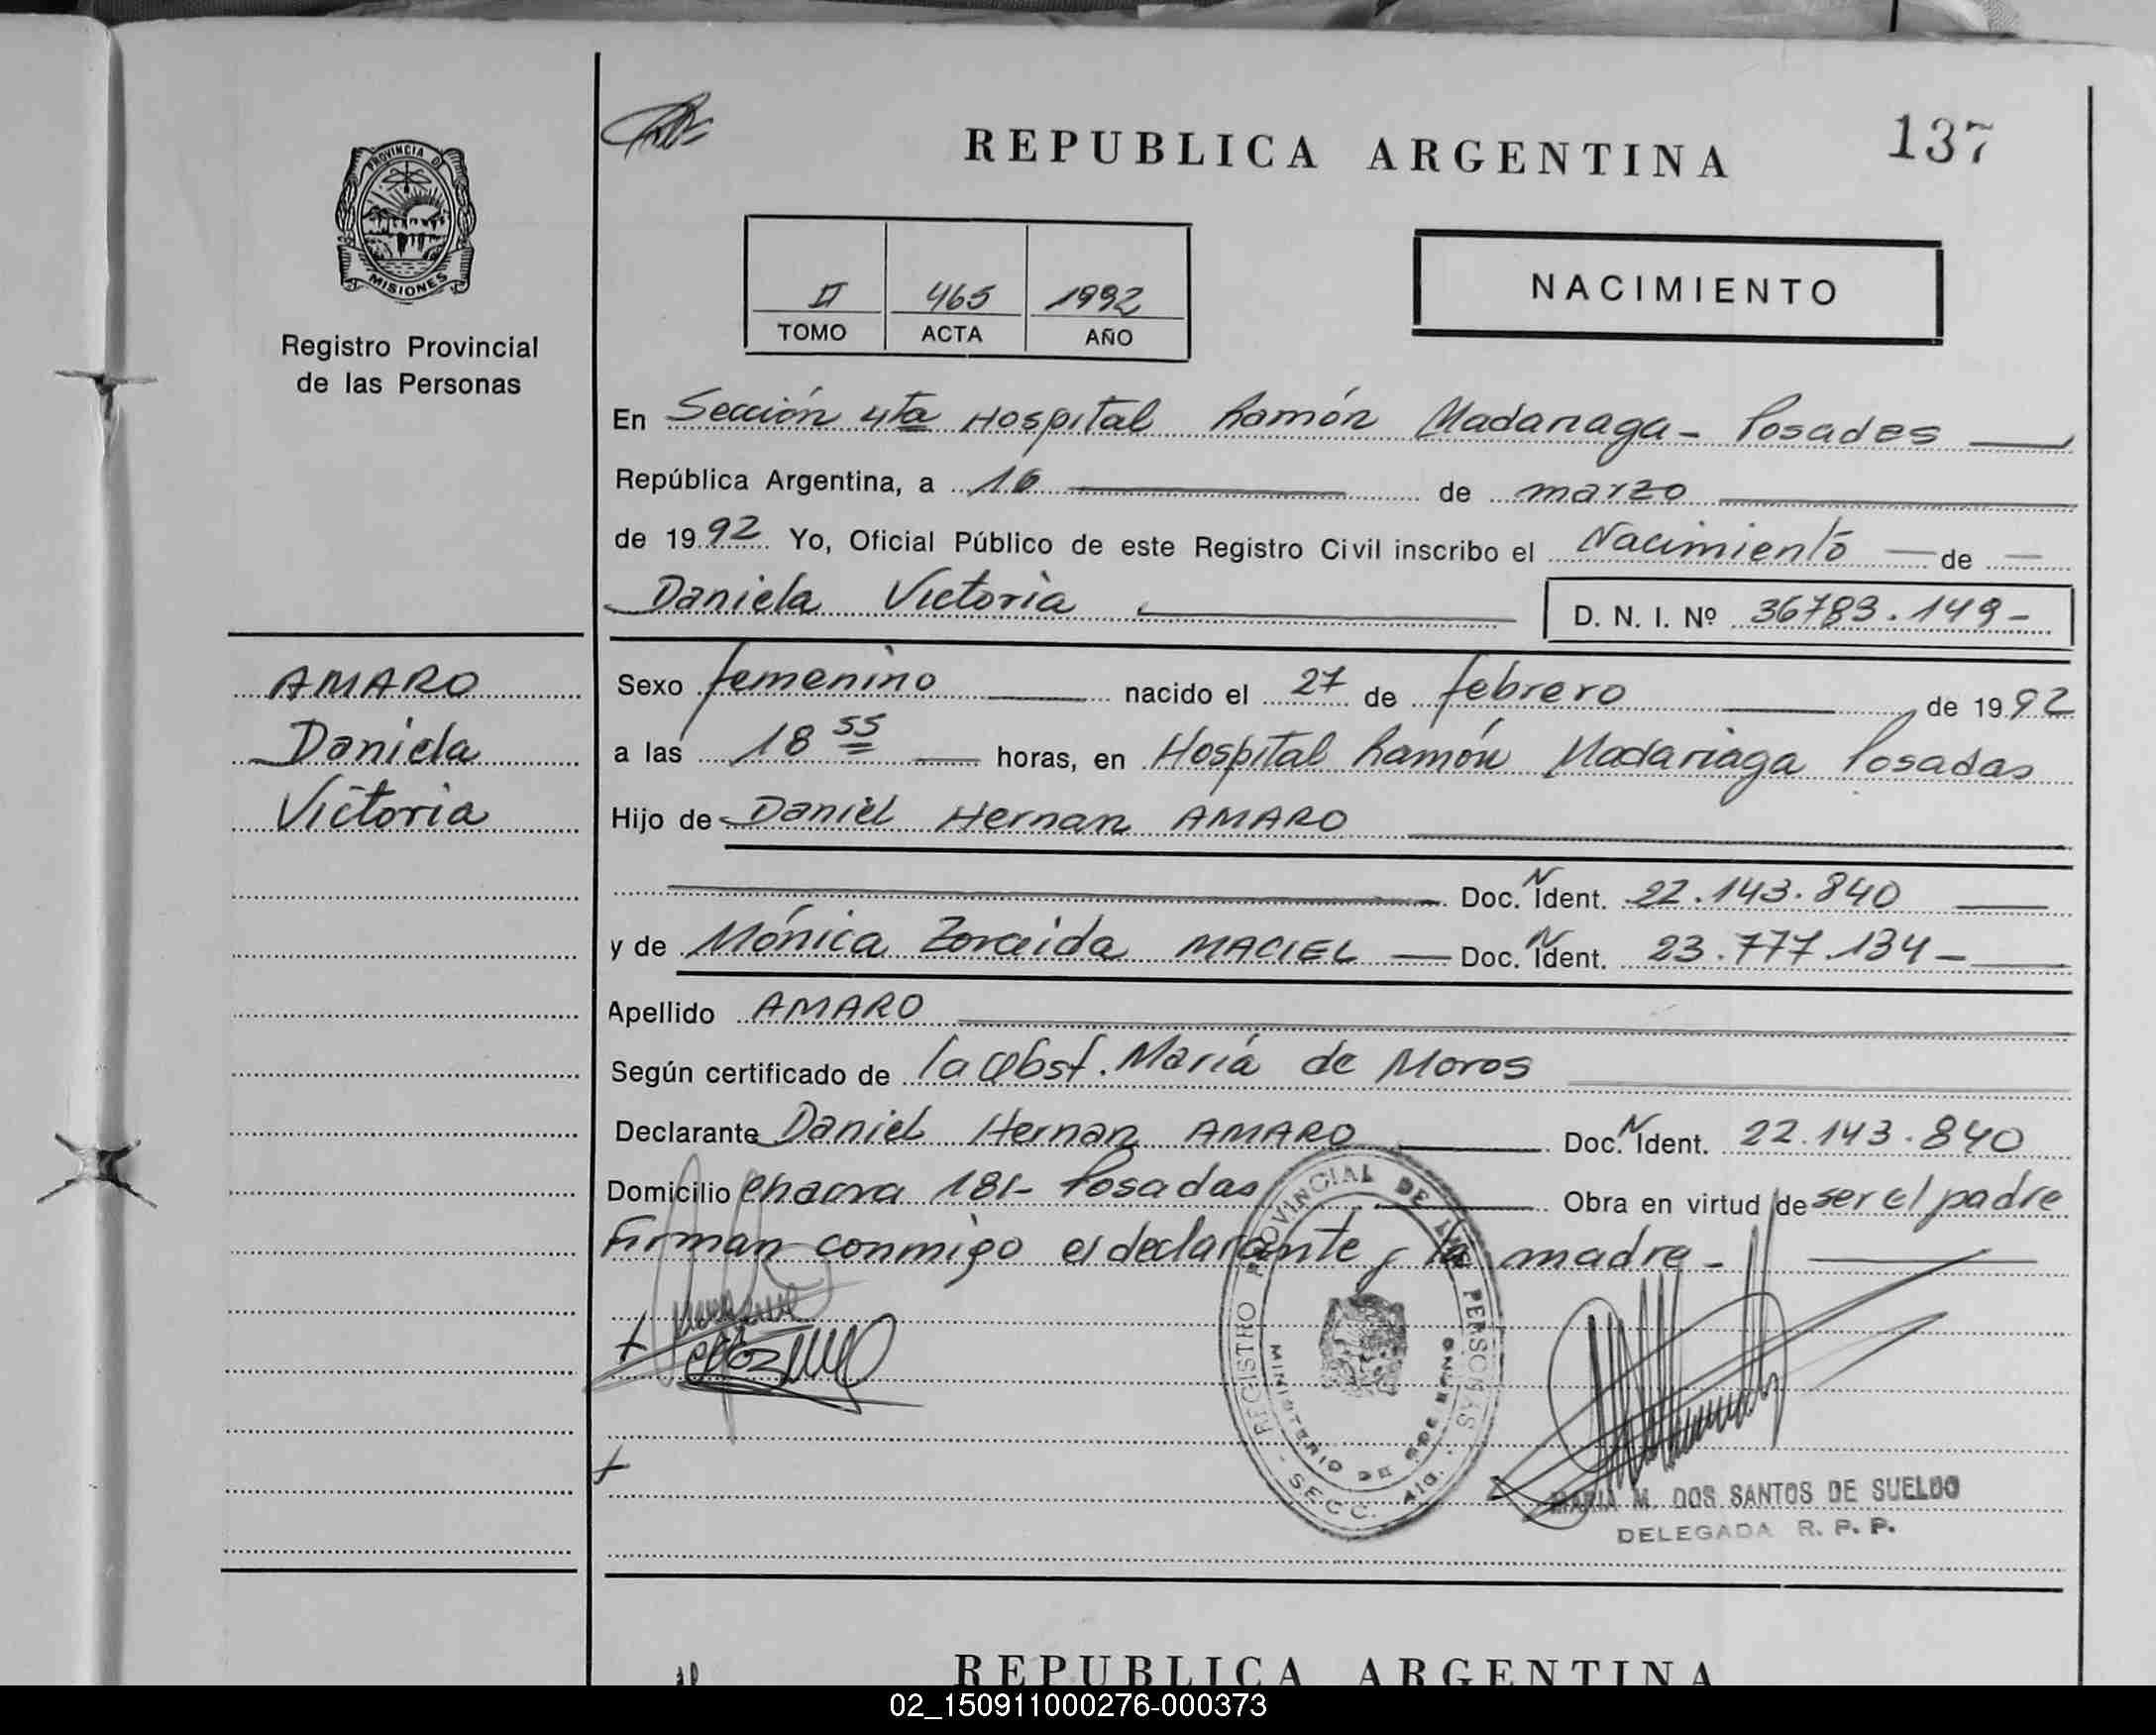 REPUBLICA ARGENTINA
137
PROVINCIA D
MISIONES
Registro Provincial
de las Personas
II 465 1992
TOMO ACTA AÑO
NACIMIENTO
En Sección 4ta Hospital Ramón Madariaga - Posadas
República Argentina, a 16 de marzo
de 1992 Yo, Oficial Público de este Registro Civil inscribo el Nacimiento de
Daniela Victoria D. N. I. Nº 36783.149-
AMARO
Daniela
Victoria
Sexo femenino nacido el 27 de febrero de 1992
a las 18 55 horas, en Hospital Ramón Madariaga Posadas
Hijo de Daniel Hernan AMARO
Doc. N Ident. 22.143.840
y de Mónica Zoraida MACIEL Doc. N Ident. 23.777.134-
Apellido AMARO
Según certificado de la Obst. María de Moros
Declarante Daniel Hernan AMARO Doc. N Ident. 22.143.840
Domicilio chacra 181- Posadas Obra en virtud de ser el padre
Firman conmigo el declarante y la madre -
REGISTRO PROVINCIAL DE LAS PERSONAS
MINISTERIO DE GOBIERNO
SECC.
MARIA M. DOS SANTOS DE SUELDO
DELEGADA R. P. P.
REPUBLICA ARGENTINA
02_150911000276-000373